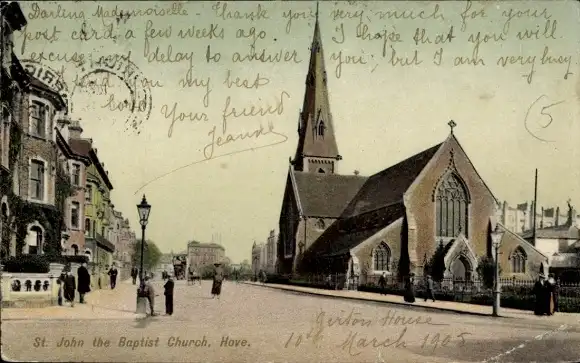 Darling Mademoiselle - Thank you very much for your
post card a few weeks ago. I hope that you will
excuse my delay to answer you, but I am very busy
on my best
love
Your friend
Jeande
5
St. John the Baptist Church, Hove.
Girton House
10th March 1905